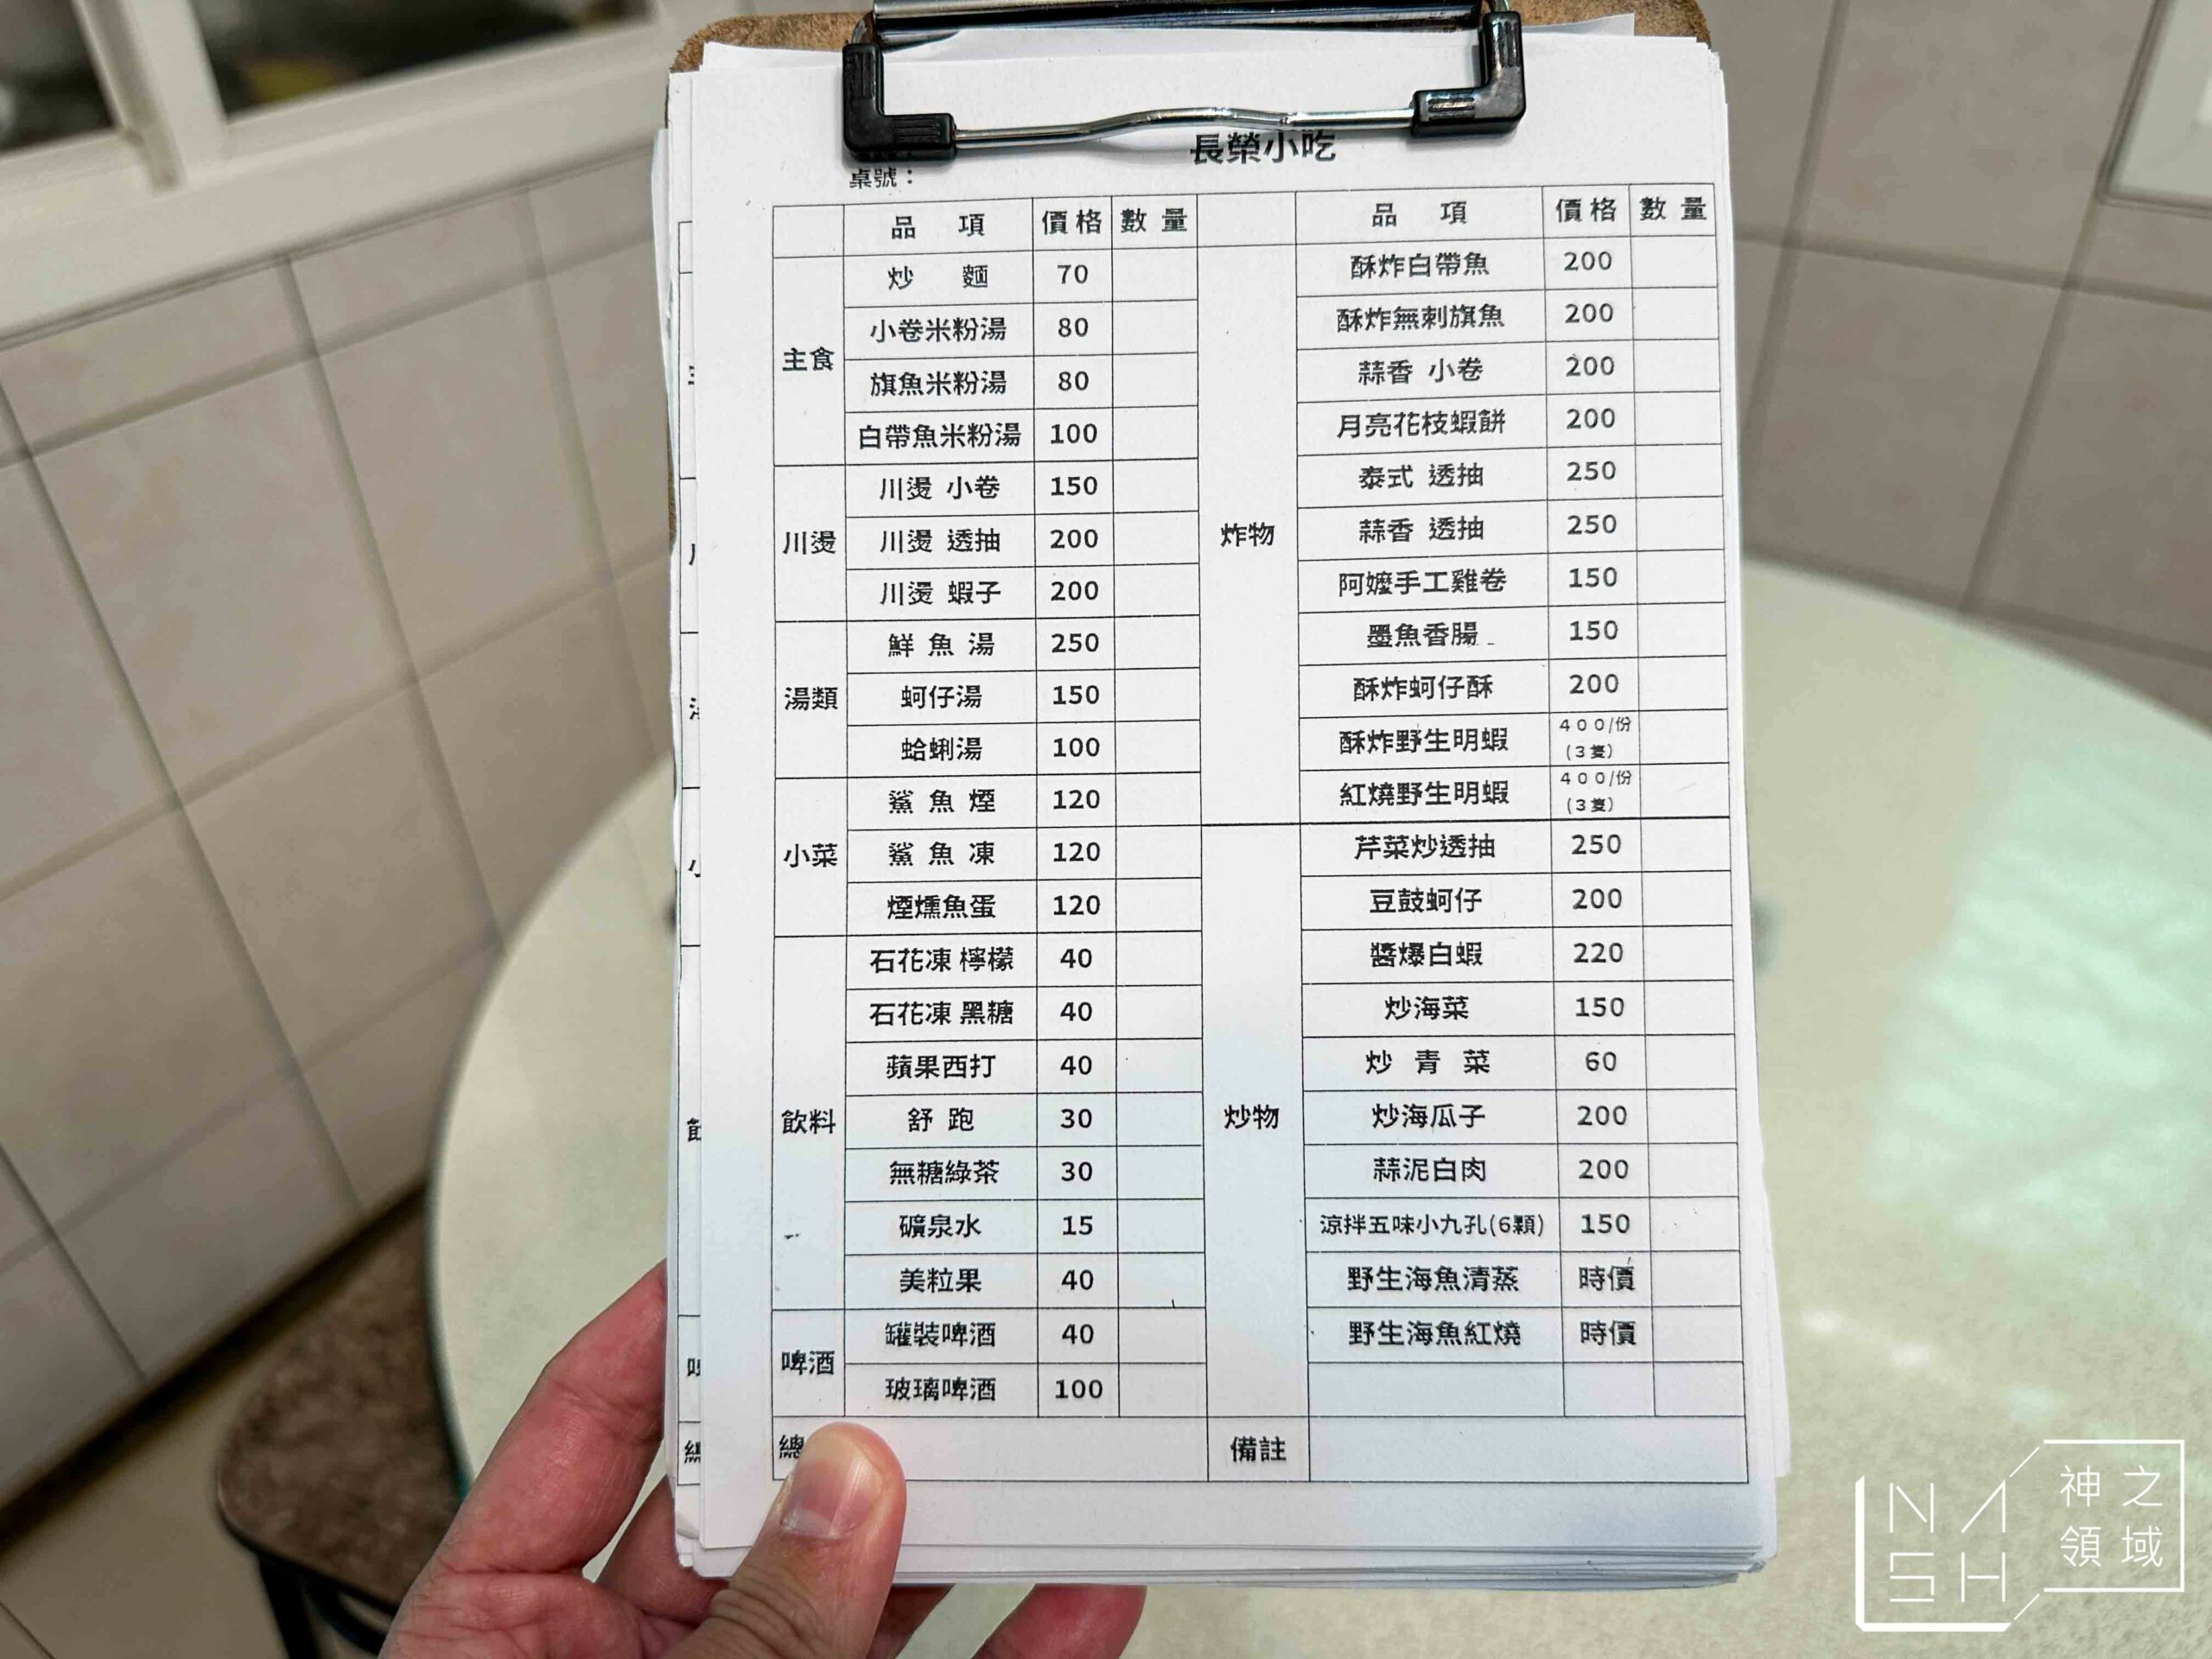 長榮小吃
桌號：
品 項 價格 數量
主食
炒 麵 70
小卷米粉湯 80
旗魚米粉湯 80
白帶魚米粉湯 100
川燙
川燙 小卷 150
川燙 透抽 200
川燙 蝦子 200
湯類
鮮魚湯 250
蚵仔湯 150
蛤蜊湯 100
小菜
鯊魚煙 120
鯊魚凍 120
煙燻魚蛋 120
飲料
石花凍 檸檬 40
石花凍 黑糖 40
蘋果西打 40
舒跑 30
無糖綠茶 30
礦泉水 15
美粒果 40
啤酒
罐裝啤酒 40
玻璃啤酒 100
總
品 項 價格 數量
炸物
酥炸白帶魚 200
酥炸無刺旗魚 200
蒜香 小卷 200
月亮花枝蝦餅 200
泰式 透抽 250
蒜香 透抽 250
阿嬤手工雞卷 150
墨魚香腸 150
酥炸蚵仔酥 200
酥炸野生明蝦 400/份
(3隻)
紅燒野生明蝦 400/份
(3隻)
炒物
芹菜炒透抽 250
豆鼓蚵仔 200
醬爆白蝦 220
炒海菜 150
炒青菜 60
炒海瓜子 200
蒜泥白肉 200
涼拌五味小九孔(6顆) 150
野生海魚清蒸 時價
野生海魚紅燒 時價
備註
NASH
神之
領域